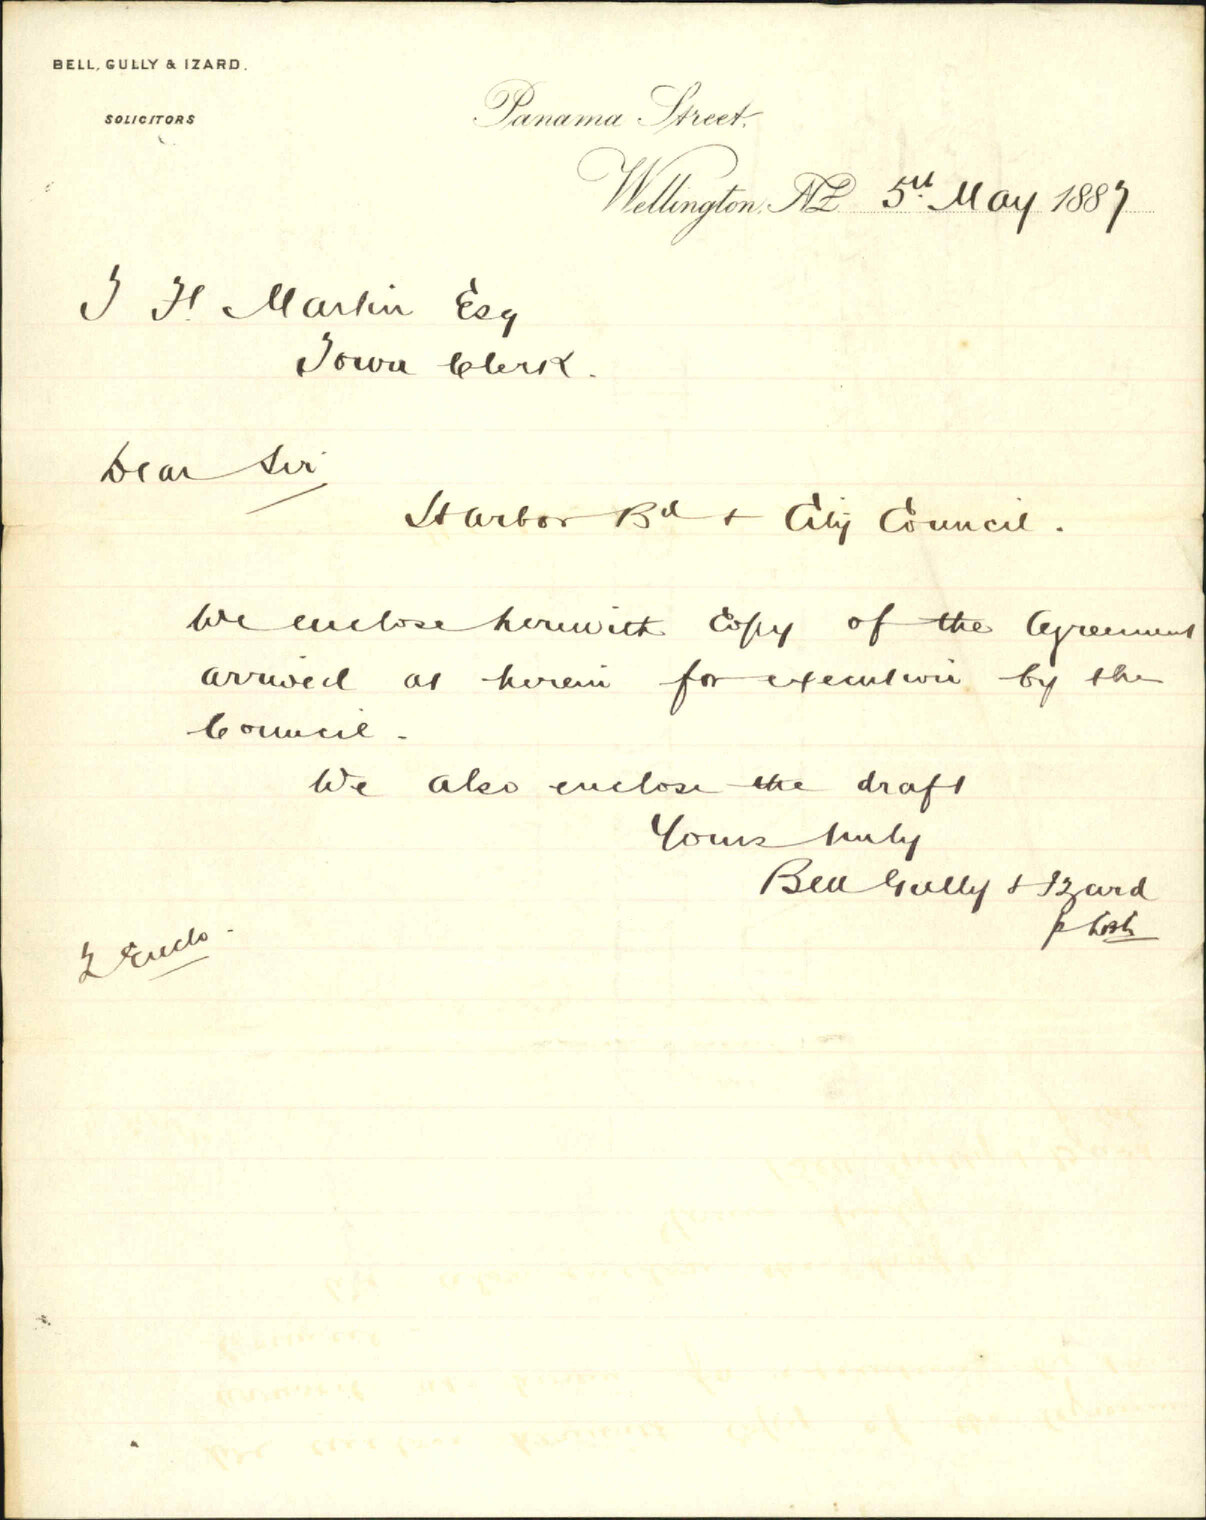 BELL, GULLY & IZARD.
SOLICITORS
Panama Street.
Wellington, NZ 5th May 1887
J H Martin Esq
Town Clerk.
Dear Sir
Harbor Bd & City Council.
We enclose herewith Copy of the Agreement
arrived at herein for execution by the
Council.
We also enclose the draft
Yours truly
Bell Gully & Izard
2 Enclo.